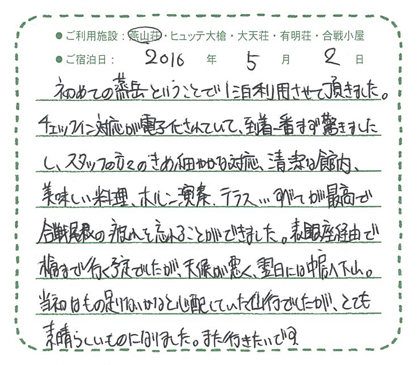 ● ご利用施設：燕山荘・ヒュッテ大槍・大天荘・有明荘・合戦小屋
● ご宿泊日： 2016 年 5 月 2 日
初めての燕岳ということで1泊利用させて頂きました。
チェックイン対応が電子化されていて、到着一番まず驚きました
し、スタッフの方々のきめ細かな対応、清潔な館内、
美味しい料理、ホルン演奏、テラス…すべてが最高で
合戦尾根の疲れを忘れることができました。表銀座経由で
槍まで行く予定でしたが、天候が悪く、翌日には中房へ下山。
当初はもの足りないかなと心配していた山行でしたが、とても
素晴らしいものになりました。また行きたいです